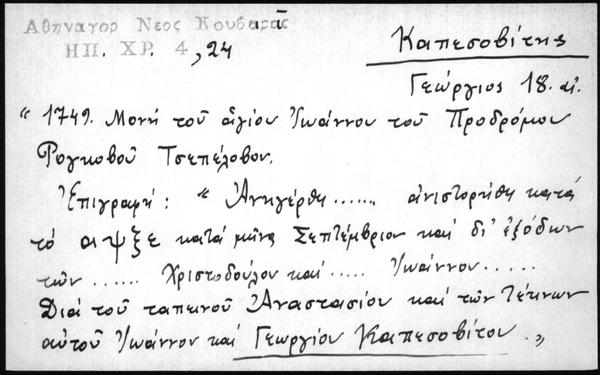 Αθηναγορ Νεος Κουβαρᾶς
ΗΠ. ΧΡ. 4, 24
Καπεσοβίτης
Γεώργιος 18. αἰ.
" 1749. Μονή τοῦ ἁγίου Ἰωάννου τοῦ Προδρόμου
Ρογκοβοῦ Τσεπέλοβον.
Ἐπιγραφή : " Ἀνηγέρθη ....... ἀνιστορήθη κατά
τό αιψξε κατά μῆνα Σεπτέμβριον καί δι' ἐξόδων
τῶν ...... Χριστοδούλου καί ..... Ἰωάννου ......
Διά τοῦ ταπεινοῦ Ἀναστασίου καί τῶν τέκνων
αὐτοῦ Ἰωάννου καί Γεωργίου Καπεσοβίτου . "